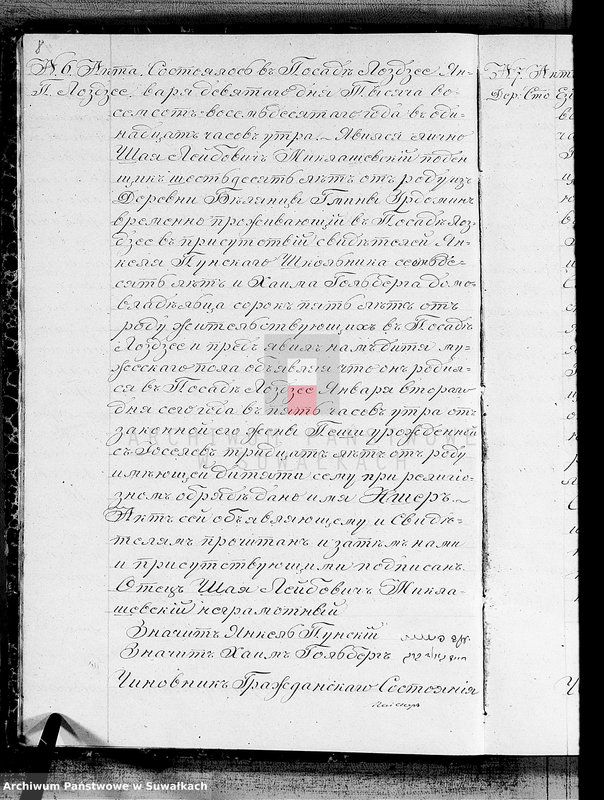 8
№ 6. Акта, Состоялось въ Посадѣ Лоздзее Ян=
П. Лоздзее, варя девятаго дня Тысяча во=
семсотъ-восемьдесятаго года въ оди=
надцать часовъ утра. Явился лично
Шая Лейбовичъ Миклашевскій поден
щикъ шестьдесятъ лѣтъ отъ роду изъ
Деревни Гмины
временно проживающій въ Посадѣ Лоз=
дзее въ присутствій свидѣтелей Ян=
келя Пунскаго Школьника семьде=
сятъ лѣтъ и Хаима Гольберга домо=
владѣльца сорокъ пять лѣтъ отъ
роду жительствующихъ въ Посадѣ
Лоздзее и предъявилъ намъ дитя му=
жескаго пола объявляя что онъ родил=
ся въ Посадѣ Лоздзее Января втораго
дня сего года въ пять часовъ утра отъ
законной его жены Пеши урожденной
съ тридцать лѣтъ отъ роду
имѣющей дитяти сему при религіо=
зномъ обрядѣ дано имя Яшеръ.
Актъ сей объявляющему и Свидѣ=
телямъ прочтанъ и затѣмъ нами
и присутствующими подписанъ
Отецъ Шая Лейбовичъ Микла=
шевскій неграмотный
Значитъ Янкель Пунскій
Значитъ Хаимъ Гольбергъ
Чиновникъ Гражданскаго Состоянія
№ 7. Акт
Дер. Сто
ARCHIWUM PAŃSTWOWE
W SUWAŁKACH
Archiwum Państwowe w Suwałkach